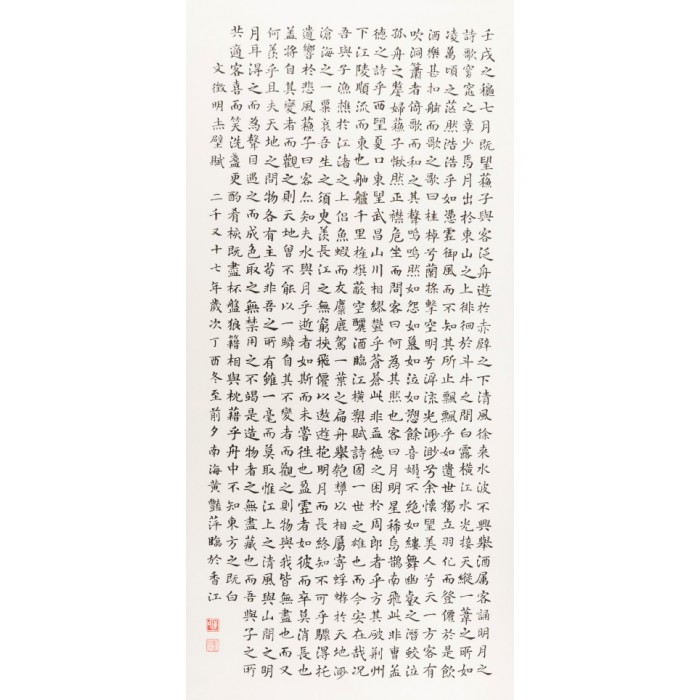 壬戌之穐七月既望蘓子與客泛舟遊於赤壁之下清風徐來水波不興舉酒屬客誦明月之
詩歌窈窕之章少焉月出於東山之上徘徊於斗牛之間白露橫江水光接天縱一葦之所如
凌萬頃之茫然浩浩乎如憑虛御風而不知其所止飄飄乎如遺世獨立羽化而登僊於是飲
酒樂甚扣舷而歌之歌曰桂棹兮蘭槳擊空明兮泝流光渺渺兮余懷望美人兮天一方客有
吹洞簫者倚歌而和之其聲嗚嗚然如怨如慕如泣如愬餘音嫋不絶如縷舞幽壑之潛蛟泣
孤舟之嫠婦蘓子愀然正襟危坐而問客曰何為其然也客曰月明星稀烏鵲南飛此非曹孟
德之詩乎西望夏口東望武昌山川相繆鬱乎蒼蒼此非孟德之困於周郎者乎方其破荆州
下江陵順流而東也舳艫千里旌旗蔽空釃酒臨江橫槊賦詩固一世之雄也而今安在哉况
吾與子漁樵於江渚之上侣魚蝦而友麋鹿駕一葉之扁舟舉匏樽以相屬寄蜉蝣於天地渺
滄海之一粟哀吾生之須臾羨長江之無窮挾飛僊以遨遊抱明月而長終知不可乎驟得托
遺響於悲風蘓子曰客亦知夫水與月乎逝者如斯而未嘗往也盈虛者如彼而卒莫消長也
盖將自其變者而觀之則天地曾不能以一瞬自其不變者而觀之則物與我皆無盡也而又
何羨乎且夫天地之間物各有主苟非吾之所有雖一毫而莫取惟江上之清風與山間之明
月耳得之而為聲目遇之而成色取之無禁用之不竭是造物者之無盡藏也而吾與子之所
共適客喜而笑洗盞更酌肴核既盡杯盤狼籍相與枕藉乎舟中不知東方之既白
文徵明赤壁賦 二千又十七年歲次丁酉冬至前夕南海黄豔萍臨於香江